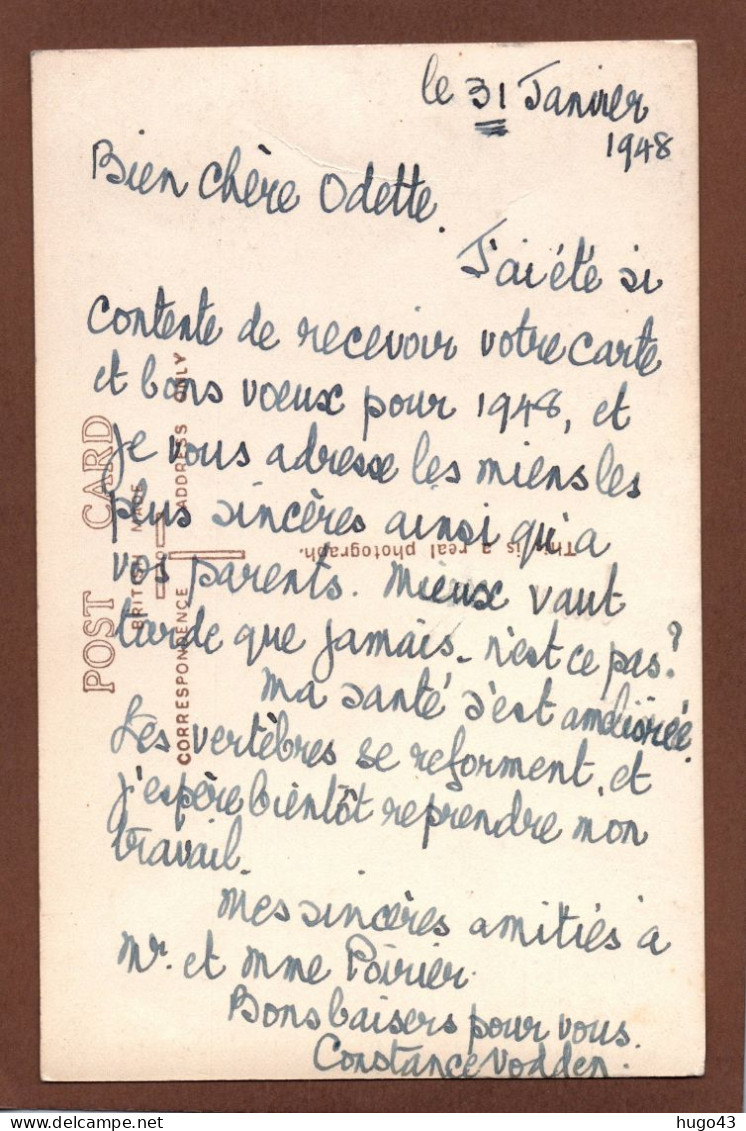 le 31 Janvier
1948
Bien chère Odette.
J'ai été si
contente de recevoir votre carte
et bons voeux pour 1948, et
je vous adresse les miens les
plus sincères ainsi qu'a
vos parents. Mieux vaut
tarde que jamais. n'est ce pas?
Ma santé s'est améliorée.
Les vertèbres se reforment, et
j'espère bientôt reprendre mon
travail.
Mes sincères amitiés à
Mr. et Mme Poirier.
Bons baisers pour vous.
Constance Vodden.
POST CARD
BRITISH MADE
CORRESPONDENCE
ADDRESS ONLY
This is a real photograph.
delcampe.net
hugo43